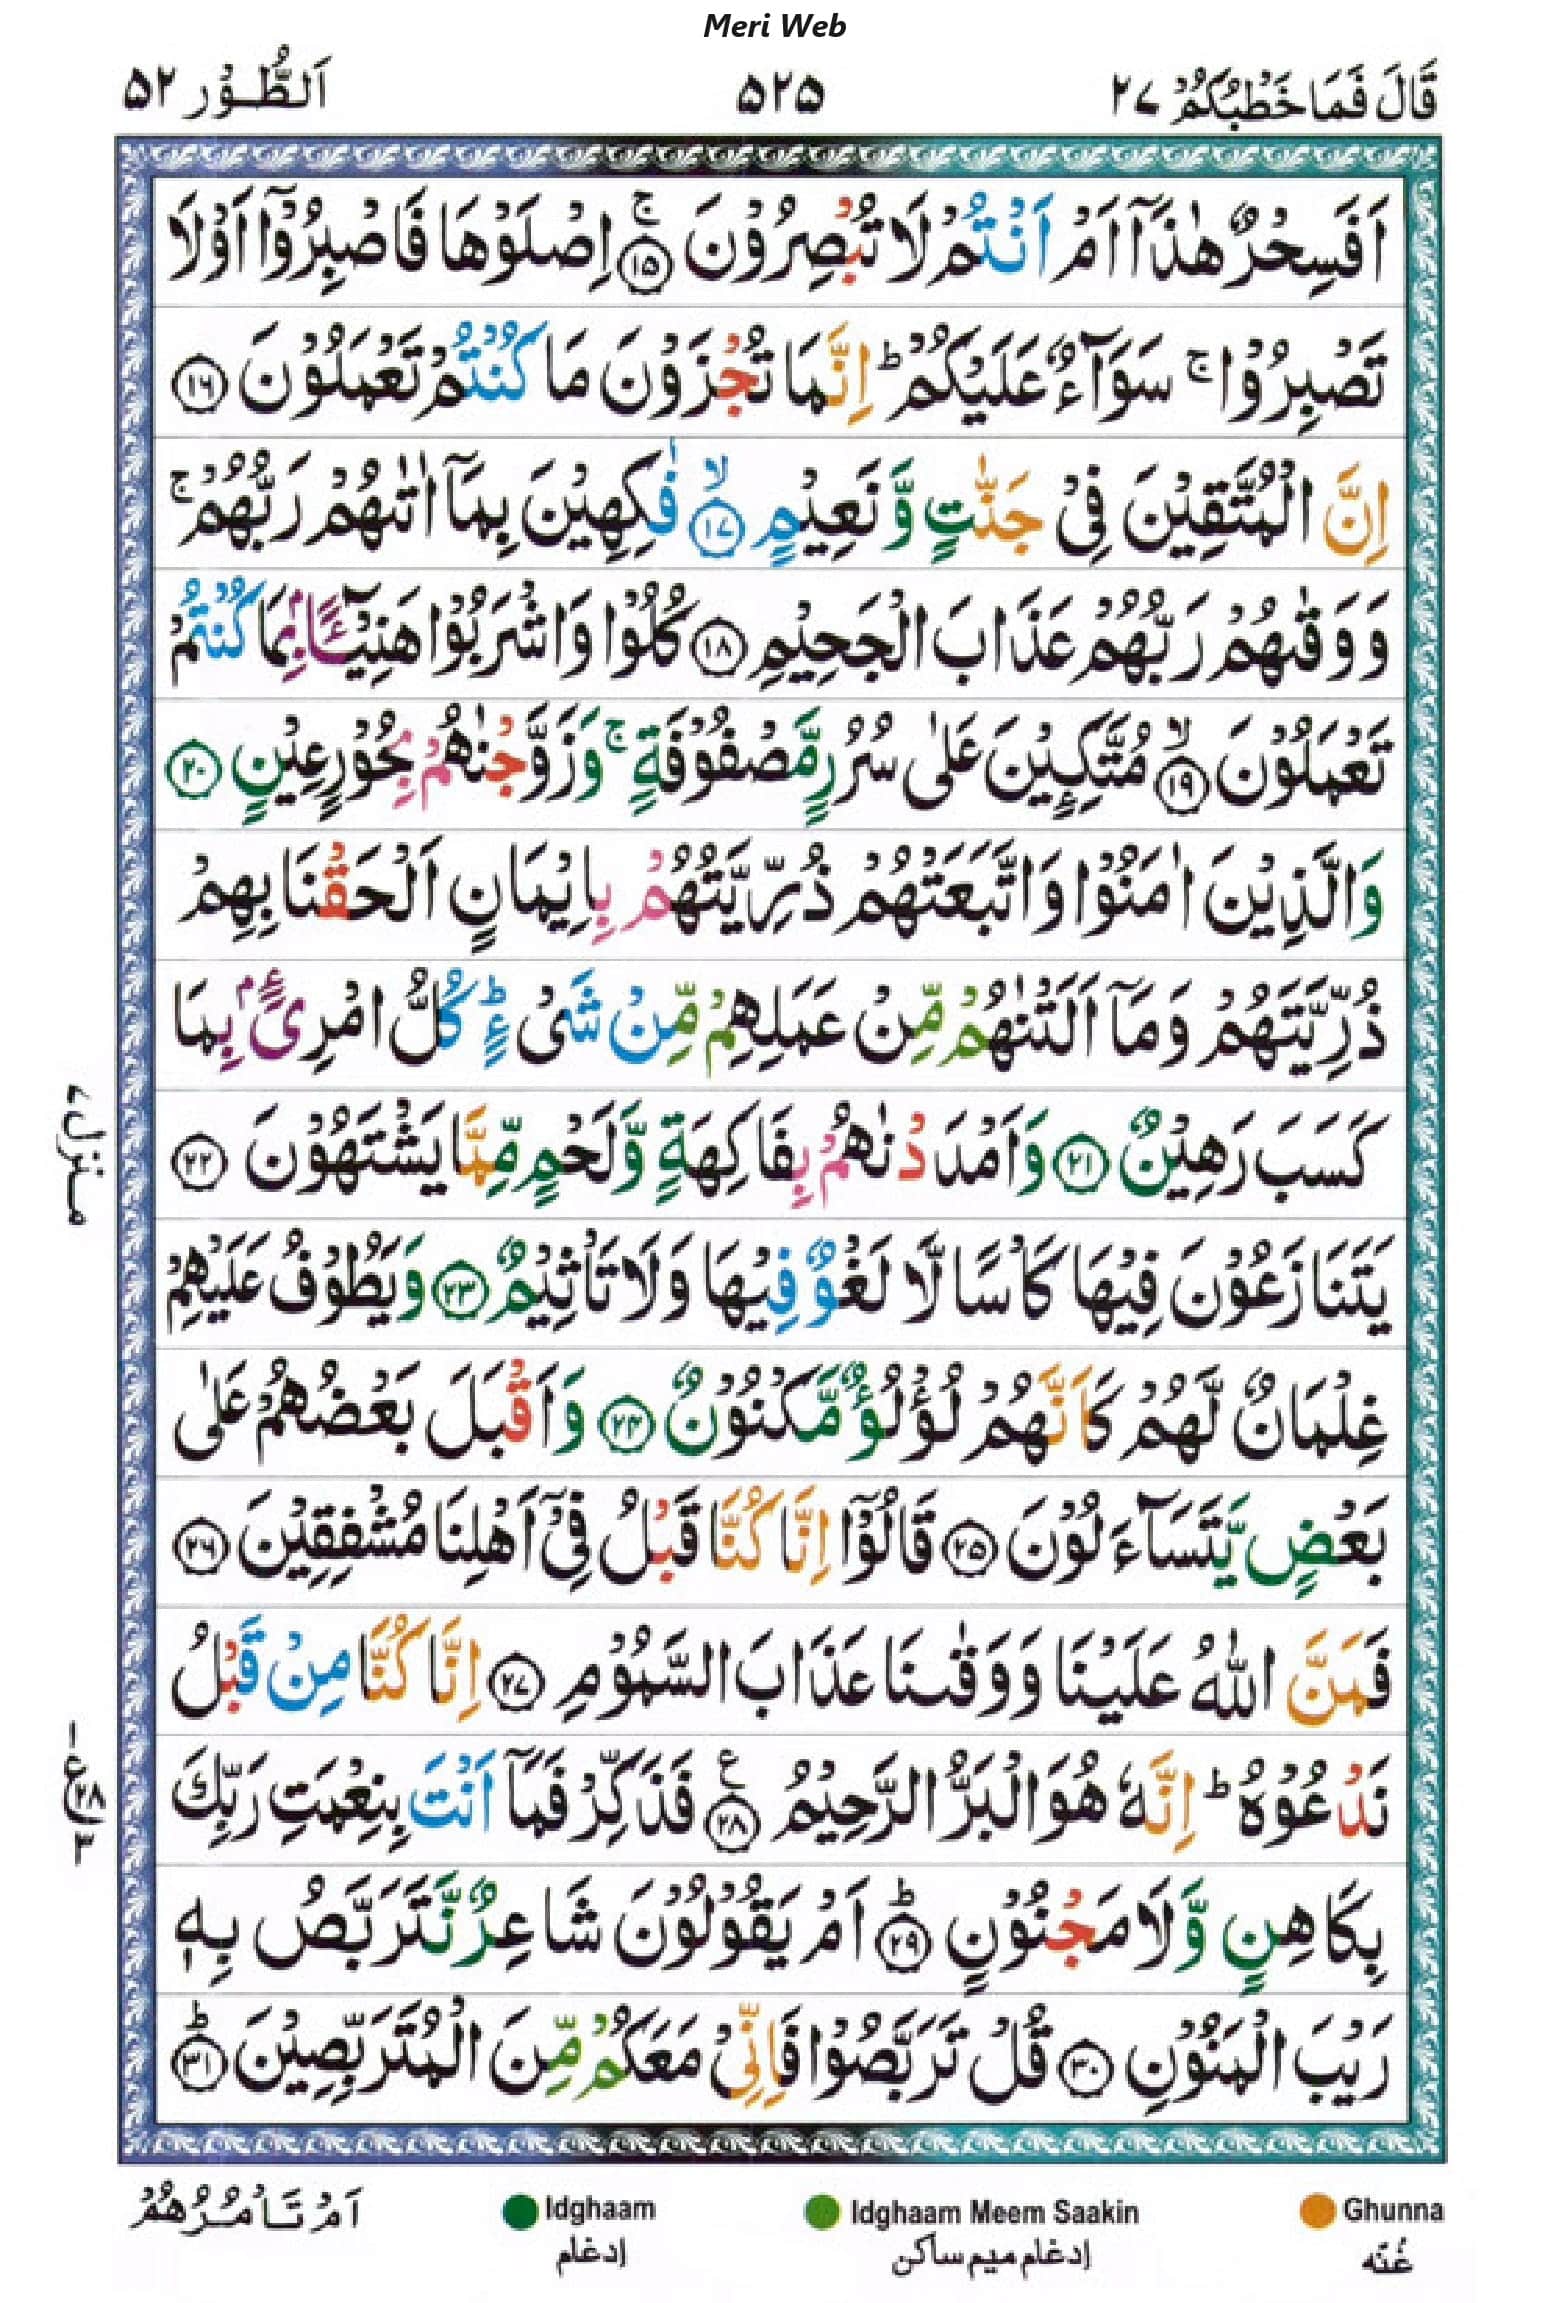 Meri Web
قَالَ فَمَا خَطْبُكُمْ ٢٧
٥٢٥
اَلطُّوْر ٥٢
اَفَسِحْرٌ هٰذَاۤ اَمْ اَنْتُمْ لَا تُبْصِرُوْنَ ۚ‏﴿۱۵﴾ اِصْلَوْهَا فَاصْبِرُوْۤا اَوْلَا
تَصْبِرُوْا ۚ سَوَآءٌ عَلَيْكُمْ ؕ اِنَّمَا تُجْزَوْنَ مَا كُنْتُمْ تَعْمَلُوْنَ ﴿۱۶﴾
اِنَّ الْمُتَّقِيْنَ فِىْ جَنّٰتٍ وَّ نَعِيْمٍ ۙ‏﴿۱۷﴾ فٰكِهِيْنَ بِمَاۤ اٰتٰٮهُمْ رَبُّهُمْ ۚ
وَ وَقٰٮهُمْ رَبُّهُمْ عَذَابَ الْجَحِيْمِ ﴿۱۸﴾ كُلُوْا وَاشْرَبُوْا هَنِيْٓـًٔا ۢ بِمَا كُنْتُمْ
تَعْمَلُوْنَ ۙ‏﴿۱۹﴾ مُتَّكِـِٕيْنَ عَلٰى سُرُرٍ مَّصْفُوْفَةٍ ۚ وَزَوَّجْنٰهُمْ بِحُوْرٍ عِيْنٍ ﴿۲۰﴾
وَالَّذِيْنَ اٰمَنُوْا وَاتَّبَعَتْهُمْ ذُرِّيَّتُهُمْ بِاِيْمَانٍ اَلْحَقْنَا بِهِمْ
ذُرِّيَّتَهُمْ وَمَاۤ اَلَتْنٰهُمْ مِّنْ عَمَلِهِمْ مِّنْ شَىْءٍ ؕ كُلُّ امْرِیءٍۢ بِمَا
كَسَبَ رَهِيْنٌ ﴿۲۱﴾ وَاَمْدَدْنٰهُمْ بِفَاكِهَةٍ وَّلَحْمٍ مِّمَّا يَشْتَهُوْنَ ﴿۲۲﴾
يَتَنَازَعُوْنَ فِيْهَا كَاْسًا لَّا لَغْوٌ فِيْهَا وَلَا تَاْثِيْمٌ ﴿۲۳﴾ وَيَطُوْفُ عَلَيْهِمْ
غِلْمَانٌ لَّهُمْ كَاَنَّهُمْ لُؤْلُؤٌ مَّكْنُوْنٌ ﴿۲۴﴾ وَاَقْبَلَ بَعْضُهُمْ عَلٰى
بَعْضٍ يَّتَسَآءَلُوْنَ ﴿۲۵﴾ قَالُوْۤا اِنَّا كُنَّا قَبْلُ فِىْۤ اَهْلِنَا مُشْفِقِيْنَ ﴿۲۶﴾
فَمَنَّ اللّٰهُ عَلَيْنَا وَوَقٰٮنَا عَذَابَ السَّمُوْمِ ﴿۲۷﴾ اِنَّا كُنَّا مِنْ قَبْلُ
نَدْعُوْهُ ؕ اِنَّهٗ هُوَ الْبَرُّ الرَّحِيْمُ ﴿۲۸﴾ ع فَذَكِّرْ فَمَاۤ اَنْتَ بِنِعْمَتِ رَبِّكَ
بِكَاهِنٍ وَّلَا مَجْنُوْنٍ ؕ‏﴿۲۹﴾ اَمْ يَقُوْلُوْنَ شَاعِرٌ نَّتَرَبَّصُ بِهٖ
رَيْبَ الْمَنُوْنِ ﴿۳۰﴾ قُلْ تَرَبَّصُوْا فَاِنِّىْ مَعَكُمْ مِّنَ الْمُتَرَبِّصِيْنَ ؕ‏﴿۳۱﴾
منزل ٧
١
ع ٢٨
٣
اَمْ تَاْمُرُهُمْ
Idghaam
ادغام
Idghaam Meem Saakin
ادغام میم ساکن
Ghunna
غُنّه